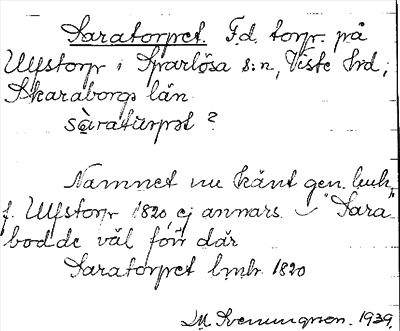 Saratorpet. F.d. torp. på
Ulvstorp i Sparlösa s:n, Viste hrd,
Skaraborgs län
sàratårpət ?
Namnet nu känt gen. lmh.
f. Ulvstorp 1820 ej annars. "Sara"
bodde väl förr där
Saratorpet lmh 1820
M. Svenungsson. 1939.